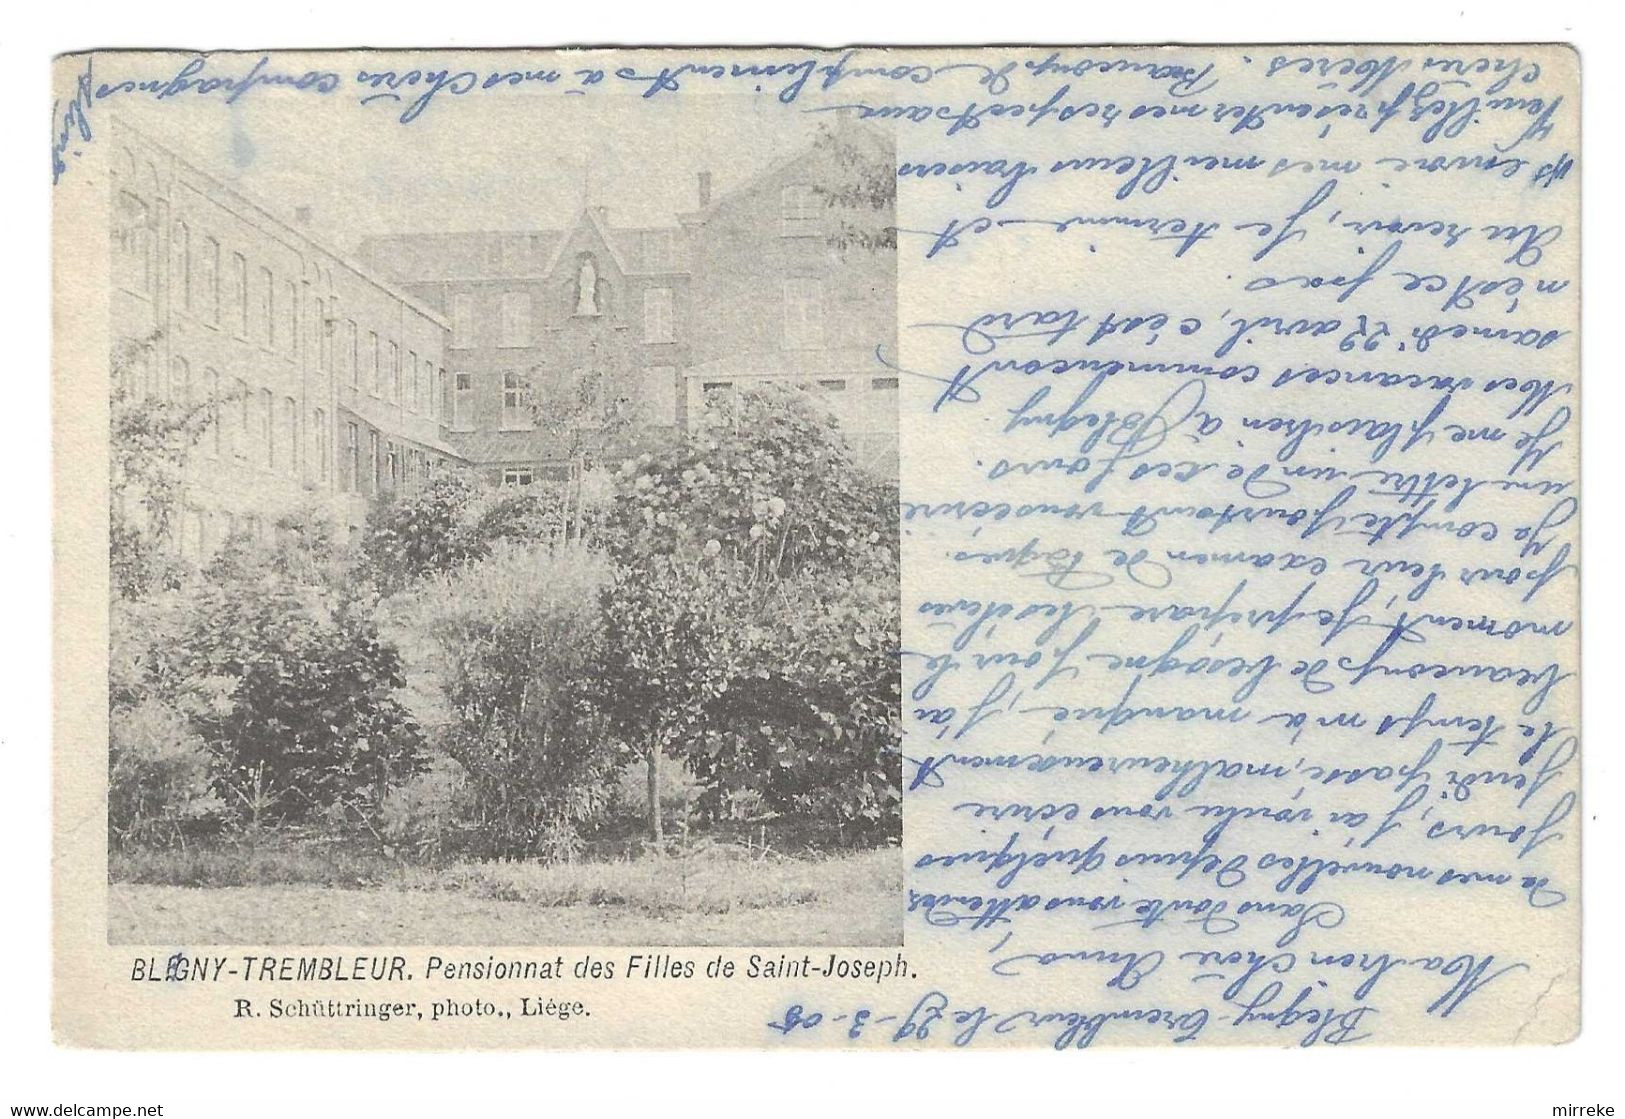 BLÉGNY-TREMBLEUR. Pensionnat des Filles de Saint-Joseph.
R. Schüttringer, photo., Liége.
Blegny-Trembleur le 29-3-05
Ma bien Chère Anna,
Sans doute vous attendez
de mes nouvelles depuis quelques
jours, j'ai voulu vous écrire
jeudi passé, malheureusement
le temps m'a manqué, j'ai
beaucoup de besogne pour le
moment, je prépare les élèves
pour leur examen de Pâques.
Je compte pourtant vous écrire
une lettre un de ces jours.
Je me plais bien à Blegny.
Mes vacances commencent
samedi 22 avril, c'est tard
n'est ce pas.
Au revoir, je termine et
vs envoie mes meilleurs baisers
Veuillez présenter mes respects aux
chères Mères. Beaucoup de compliments à mes Chères compagnes
mirreke